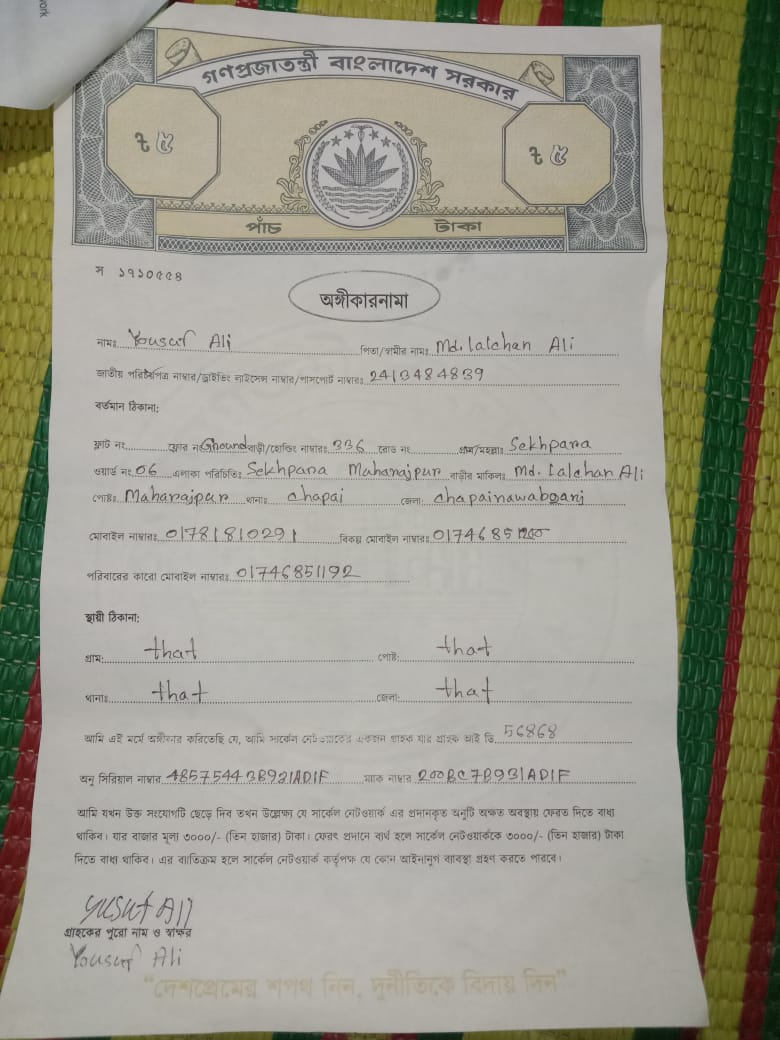 work
গণপ্রজাতন্ত্রী বাংলাদেশ সরকার
৳ ৫ ৳ ৫
পাঁচ টাকা
স ১৭১০৫৫৪
অঙ্গীকারনামা
নামঃ Yousuf Ali পিতা/স্বামীর নামঃ Md. lalchan Ali
জাতীয় পরিচয়পত্র নাম্বার/ড্রাইভিং লাইসেন্স নাম্বার/পাসপোর্ট নাম্বারঃ 2413484839
বর্তমান ঠিকানা:
ফ্লাট নং ফ্লোর নং Ground বাড়ী/হোল্ডিং নাম্বারঃ 336 রোড নং গ্রাম/মহল্লাঃ Sekhpara
ওয়ার্ড নং 06 এলাকা পরিচিতিঃ Sekhpara Maharajpur বাড়ীর মালিকঃ Md. Lalchan Ali
পোষ্টঃ Maharajpur থানাঃ chapai জেলা: chapainawabganj
মোবাইল নাম্বারঃ 01781810291 বিকল্প মোবাইল নাম্বারঃ
পরিবারের কারো মোবাইল নাম্বারঃ 01746851192
স্থায়ী ঠিকানা:
গ্রাম: that পোষ্ট: that
থানাঃ that জেলা: that
আমি এই মর্মে অঙ্গীকার করিতেছি যে, আমি সার্কেল নেটওয়ার্কের একজন গ্রাহক যার গ্রাহক আই ডি 56868
অনু সিরিয়াল নাম্বার 485754433B921ADIF ম্যাক নাম্বার 200BC7B931ADIF
আমি যখন উক্ত সংযোগটি ছেড়ে দিব তখন উল্লেখ্য যে সার্কেল নেটওয়ার্ক এর প্রদানকৃত অনুটি অক্ষত অবস্থায় ফেরত দিতে বাধ্য
থাকিব। যার বাজার মূল্য ৩০০০/- (তিন হাজার) টাকা। ফেরৎ প্রদানে ব্যর্থ হলে সার্কেল নেটওয়ার্ককে ৩০০০/- (তিন হাজার) টাকা
দিতে বাধ্য থাকিব। এর ব্যতিক্রম হলে সার্কেল নেটওয়ার্ক কর্তৃপক্ষ যে কোন আইনানুগ ব্যবস্থা গ্রহণ করতে পারবে।
Yusuf Ali
গ্রাহকের পুরো নাম ও স্বাক্ষর
Yousuf Ali
"দেশপ্রেমের শপথ নিন, দুর্নীতিকে বিদায় দিন"